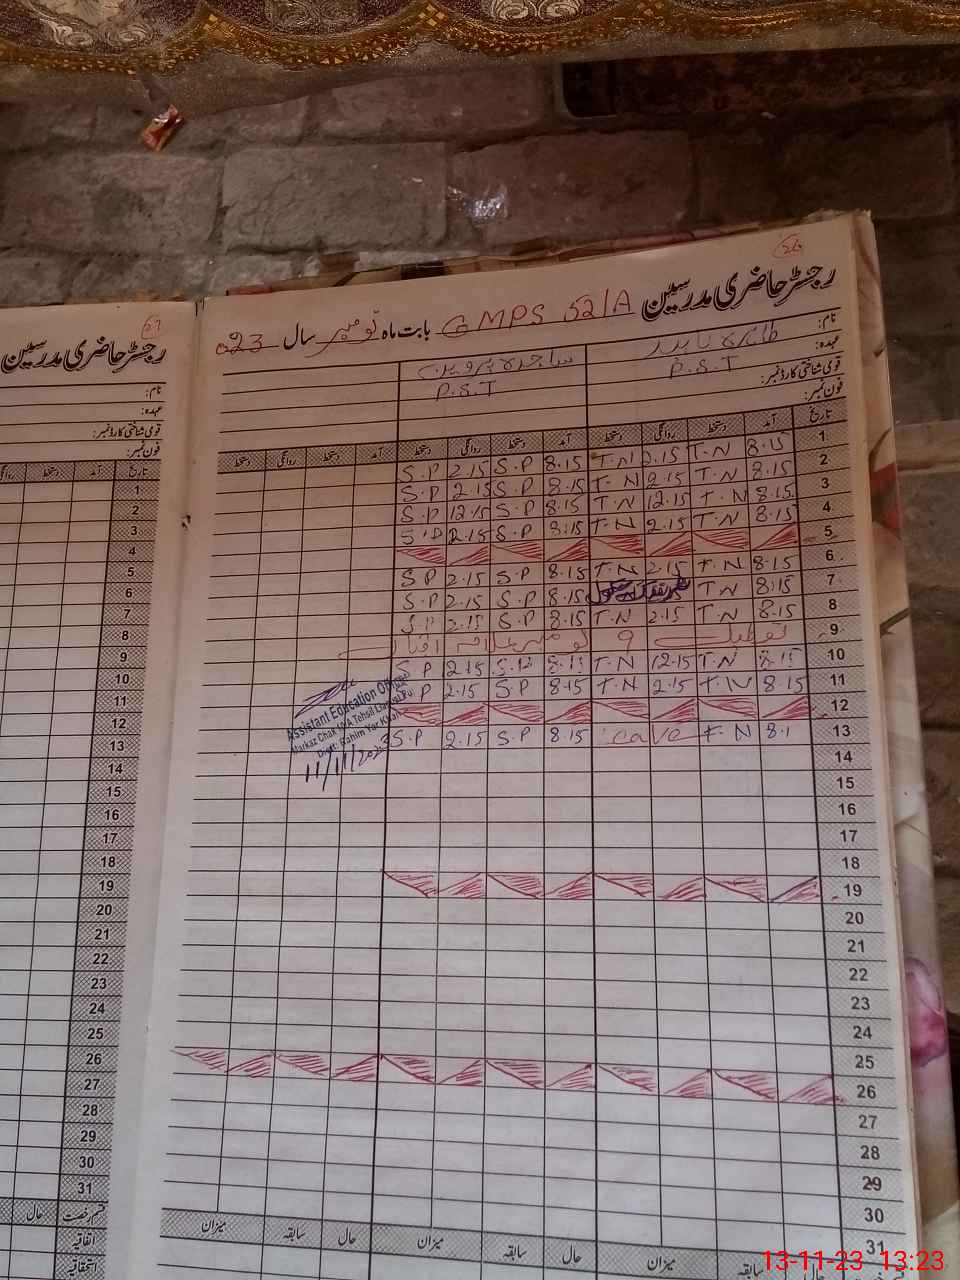 26
رجسٹر حاضری مدرسین GMPS 52/A بابت ماہ نومبر سال 023
نام:
عہدہ: P.S.T P.S.T
قومی شناختی کارڈ نمبر:
فون نمبر:
تاریخ آمد دستخط روانگی دستخط آمد دستخط روانگی دستخط آمد دستخط روانگی دستخط
1 8.15 T.N 2.15 T.N 8.15 S.P 2.15 S.P
2 8.15 T.N 2.15 T.N 8.15 S.P 2.15 S.P
3 8.15 T.N 12.15 T.N 8.15 S.P 12.15 S.P
4 8.15 T.N 2.15 T.N 8.15 S.P 2.15 S.P
5
6 8.15 T.N 2.15 T.N 8.15 S.P 2.15 S.P
7 8.15 T.N 8.15 S.P 2.15 S.P
8 8.15 T.N 2.15 T.N 8.15 S.P 2.15 S.P
9 تعطیل 9 نومبر علامہ اقبال
10 8.15 T.N 12.15 T.N 8.15 S.P 2.15 S.P
11 8.15 T.N 2.15 T.N 8.15 S.P 2.15 S.P
12
13 8.1 T.N Leave 8.15 S.P 2.15 S.P
Assistant Education Officer
Markaz Chak
Distt: Rahim Yar Khan
11/11/2023
14
15
16
17
18
19
20
21
22
23
24
25
26
27
28
29
30
31
میزان سابقہ حال میزان سابقہ حال میزان سابقہ حال
27
رجسٹر حاضری مدرسین
نام:
عہدہ:
قومی شناختی کارڈ نمبر:
فون نمبر:
تاریخ آمد دستخط
1
2
3
4
5
6
7
8
9
10
11
12
13
14
15
16
17
18
19
20
21
22
23
24
25
26
27
28
29
30
31
قسم رخصت حال
اتفاقیہ
استحقاقیہ
13-11-23 13:23